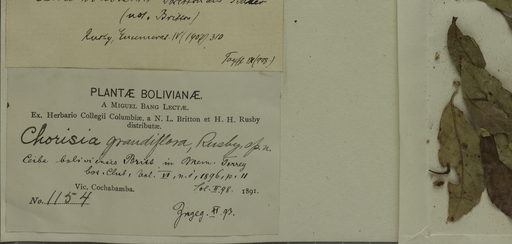 (not Britton)
Rusby, Enumerat. IV (1907) 310
PLANTÆ BOLIVIANÆ.
A MIGUEL BANG LECTÆ.
Ex. Herbario Collegii Columbiæ, a N. L. Britton et H. H. Rusby
distributæ.
Chorisia grandiflora, Rusby, sp. n.
Ceiba boliviensis Britt. in Mem. Torrey
bot. Club, vol. VI, n. 1, 1896, p. 11
Vic. Cochabamba. 1891.
No. 1154